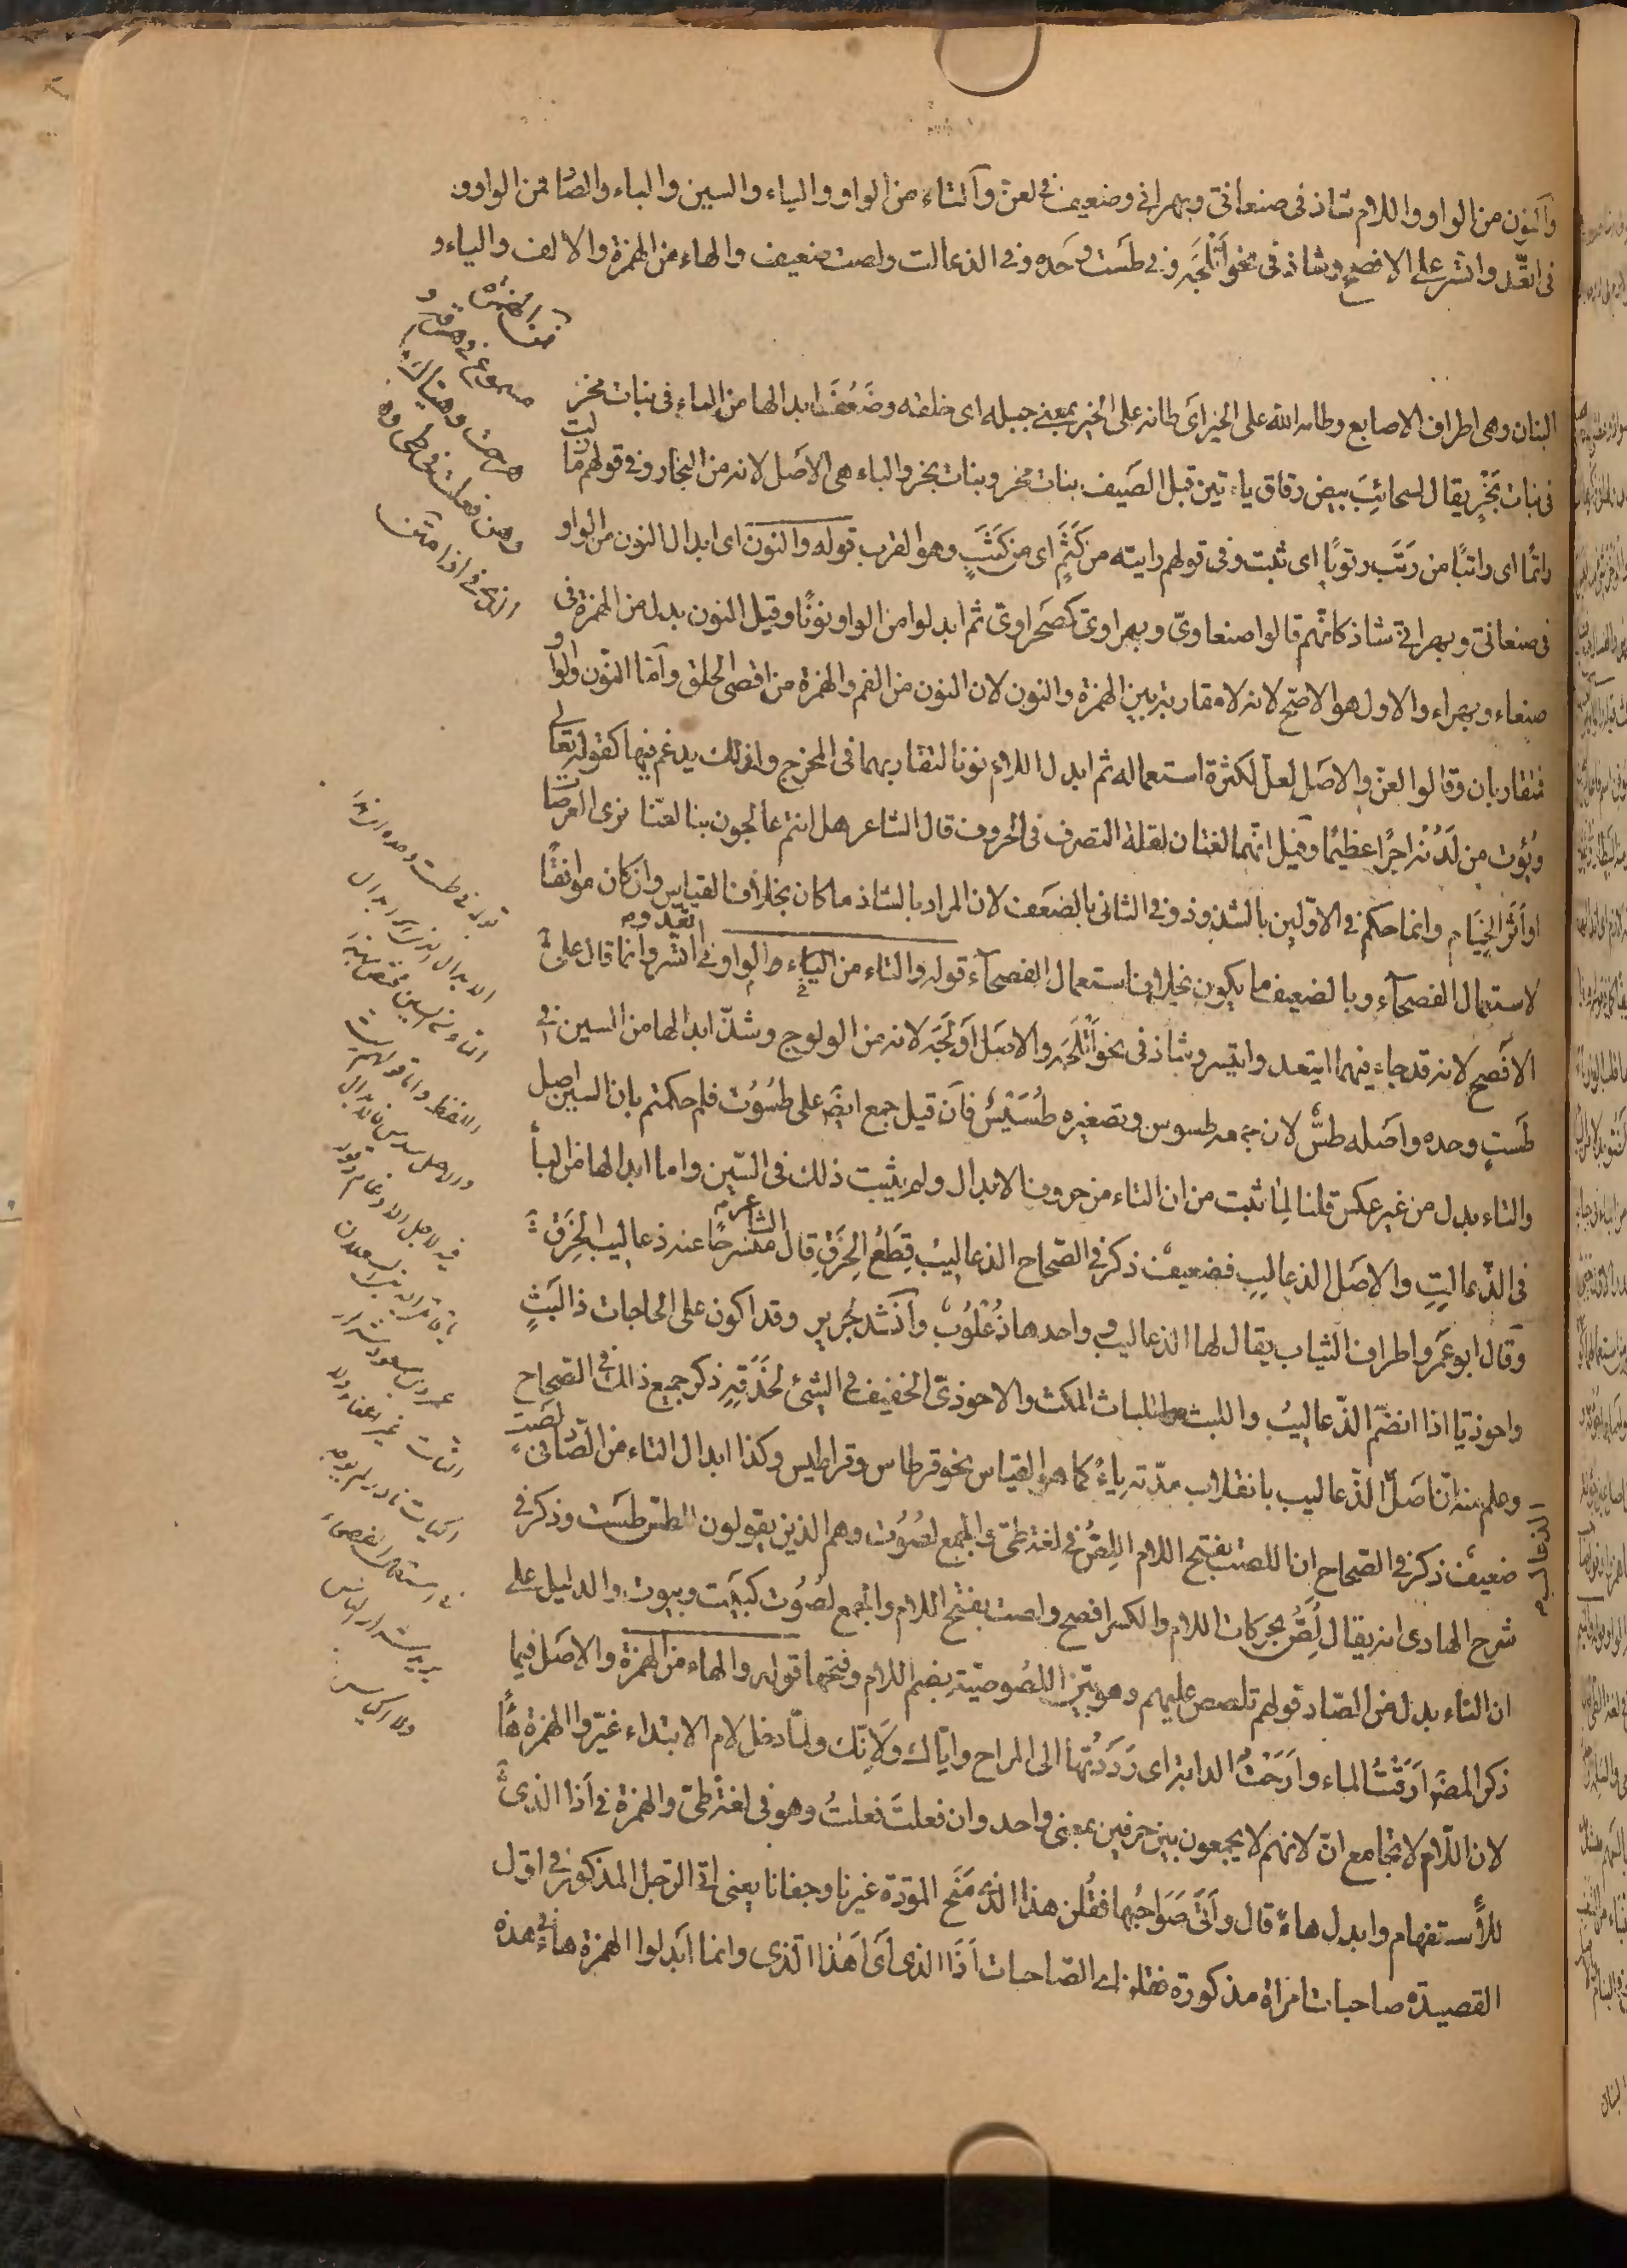 والنون من الواو واللام شاذ في صنعاني وبهراني وضعيف في لعن والتاء من الواو والياء والسين والباء والصاد فمن الواو و
في اتعد واتسر على الافصح وشاذ في نحو اتلجه وفي طست وحده وفي الذعالت ولصت ضعيف والهاء من الهمزة والالف والياء و
البنان وهي اطراف الاصابع وطامه الله على الخير اى طانه على الخير بمعنى جبله اى خلقه وضعف ابدالها من الباء في بنات مخر
في بنات بخر يقال لسحائب بيض رقاق ياتين قبل الصيف بنات مخر وبنات بخر والباء هي الاصل لانه من البخار وفي قولهم ما زلت
راتما اى راتبا من رتب رتوبا اى ثبت وفي قولهم رايته من كثم اى من كثب وهو القرب قوله والنون اى ابدال النون من الواو
في صنعاني وبهراني شاذ كانهم قالوا صنعاوي وبهراوي كصحراوي ثم ابدلوا من الواو نونا وقيل النون بدل من الهمزة في
صنعاء وبهراء والاول هو الاصح لانه لا مقاربة بين الهمزة والنون لان النون من الفم والهمزة من اقصى الحلق واما النون والواو
فتقاربان وقالوا لعن والاصل لعل لكثرة استعماله ثم ابدل اللام نونا لتقاربهما في المخرج ولذلك يدغم فيها كقوله تعالى
ويؤت من لدنه اجرا عظيما وقيل انهما لغتان لقلة التصرف في الحروف قال الشاعر هل انتم عائجون بنا لعنا نرى العرصات
او اثر الخيام وانما حكم في الاولين بالشذوذ وفي الثاني بالضعف لان المراد بالشاذ ما كان بخلاف القياس وان كان موافقا
لاستعمال الفصحاء وبالضعيف ما يكون بخلاف استعمال الفصحاء قوله والتاء من الياء والواو في اتعد واتسر وانما قال على
الافصح لانه قد جاء فيهما ايتعد وايتسر وشاذ في نحو اتلجه والاصل اولجه لانه من الولوج وشذ ابدالها من السين في
طست وحده واصله طس لان جمعه طسوس وتصغيره طسيس فان قيل جمع ايضا على طسوت فلم حكمتم بان السين اصل
والتاء بدل من غير عكس قلنا لما ثبت من ان التاء من حروف الابدال ولم يثبت ذلك في السين واما ابدالها من الباء
في الذعالت والاصل الذعالب فضعيف ذكر في الصحاح الذعاليب قطع الخرق قال الشاعر منسرحا عنه ذعاليب الخرق
وقال ابو عمرو اطراف الثياب يقال لها الذعاليب واحدها ذعلوب وانشد لجرير وقد اكون على الحاجات ذا لبث
واحوذيا اذا انضم الذعاليب واللبث واللباث المكث والاحوذي الخفيف في الشئ لحذقه ذكر جميع ذلك في الصحاح
وعلم منه ان اصل الذعاليب بانقلاب مدته ياء كما هو القياس نحو قرطاس وقراطيس وكذا ابدال التاء من الصاد في لصت
ضعيف ذكر في الصحاح ان اللصت بفتح اللام اللص في لغة طي والجمع لصوت وهم الذين يقولون للطس طست وذكر في
شرح الهادى انه يقال لص بحركات اللام والكسر افصح ولصت بفتح اللام والجمع لصوت كبيت وبيوت والدليل على
ان التاء بدل من الصاد قولهم تلصص عليهم وهو بين اللصوصية بضم اللام وفتحها قوله والهاء من الهمزة والاصل فيما
ذكر المص ارقت الماء وارحت الدابة اى رددتها الى المراح واياك ولانك ولما دخل لام الابتداء غيروا الهمزة هاء
لان اللام لا يجامع ان لانهم لا يجمعون بين حرفين بمعنى واحد وان فعلت فعلت وهو في لغة طي والهمزة في اذا الذي
للاستفهام وابدل هاء قال واتى صواحبها فقلن هذا الذي منح المودة غيرنا وجفانا يعنى اتى الرجل المذكور في اول
القصيدة صاحبات امراة مذكورة فقلن اى الصاحبات اذا الذى اى اهذا الذي وانما ابدلوا الهمزة هاء في هذه
فمن الهمزة
مسموع في هرقت و
هرحت وهياك
وهن فعلت في طي وه
قوله في طست وحده